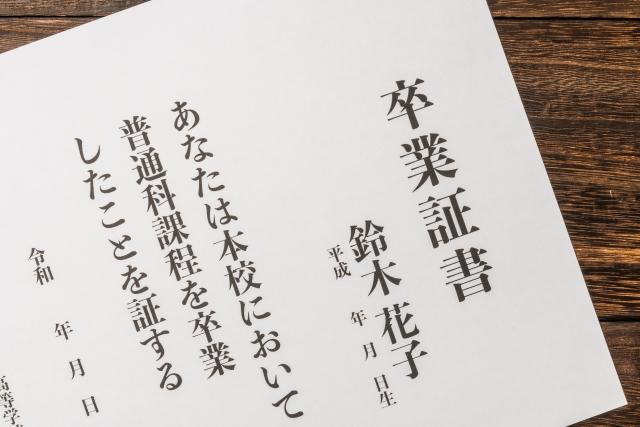 卒業証書
鈴木 花子
平成 年 月 日生
あなたは本校において
普通科課程を卒業
したことを証する
令和 年 月 日
高等学